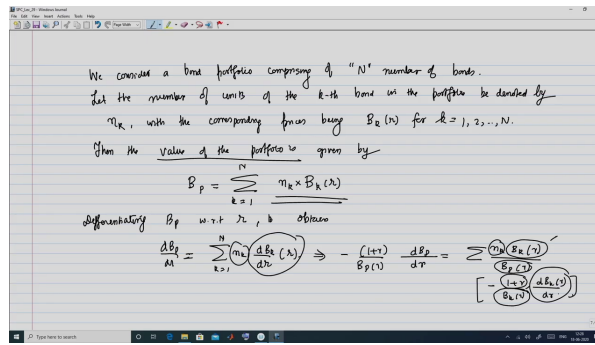 SPC_Lec_29 - Windows Journal
File Edit View Insert Actions Tools Help
Page Width
We consider a bond portfolio comprising of "N" number of bonds.
Let the number of units of the k-th bond in the portfolio be denoted by
n_k, with the corresponding prices being B_k(r) for k = 1, 2, .., N.
Then the value of the portfolio is given by
B_p = \sum_{k=1}^{N} n_k × B_k(r)
Differentiating B_p w.r.t r, obtain
\frac{dB_p}{dr} = \sum_{k=1}^{N} n_k \frac{dB_k}{dr}(r) ⇒ - \frac{(1+r)}{B_p(r)} \frac{dB_p}{dr} = \sum \frac{n_k B_k(r)}{B_p(r)}
[ - \frac{(1+r)}{B_k(r)} \frac{dB_k(r)}{dr} ]
Type here to search
ENG
12:28
15-06-2020